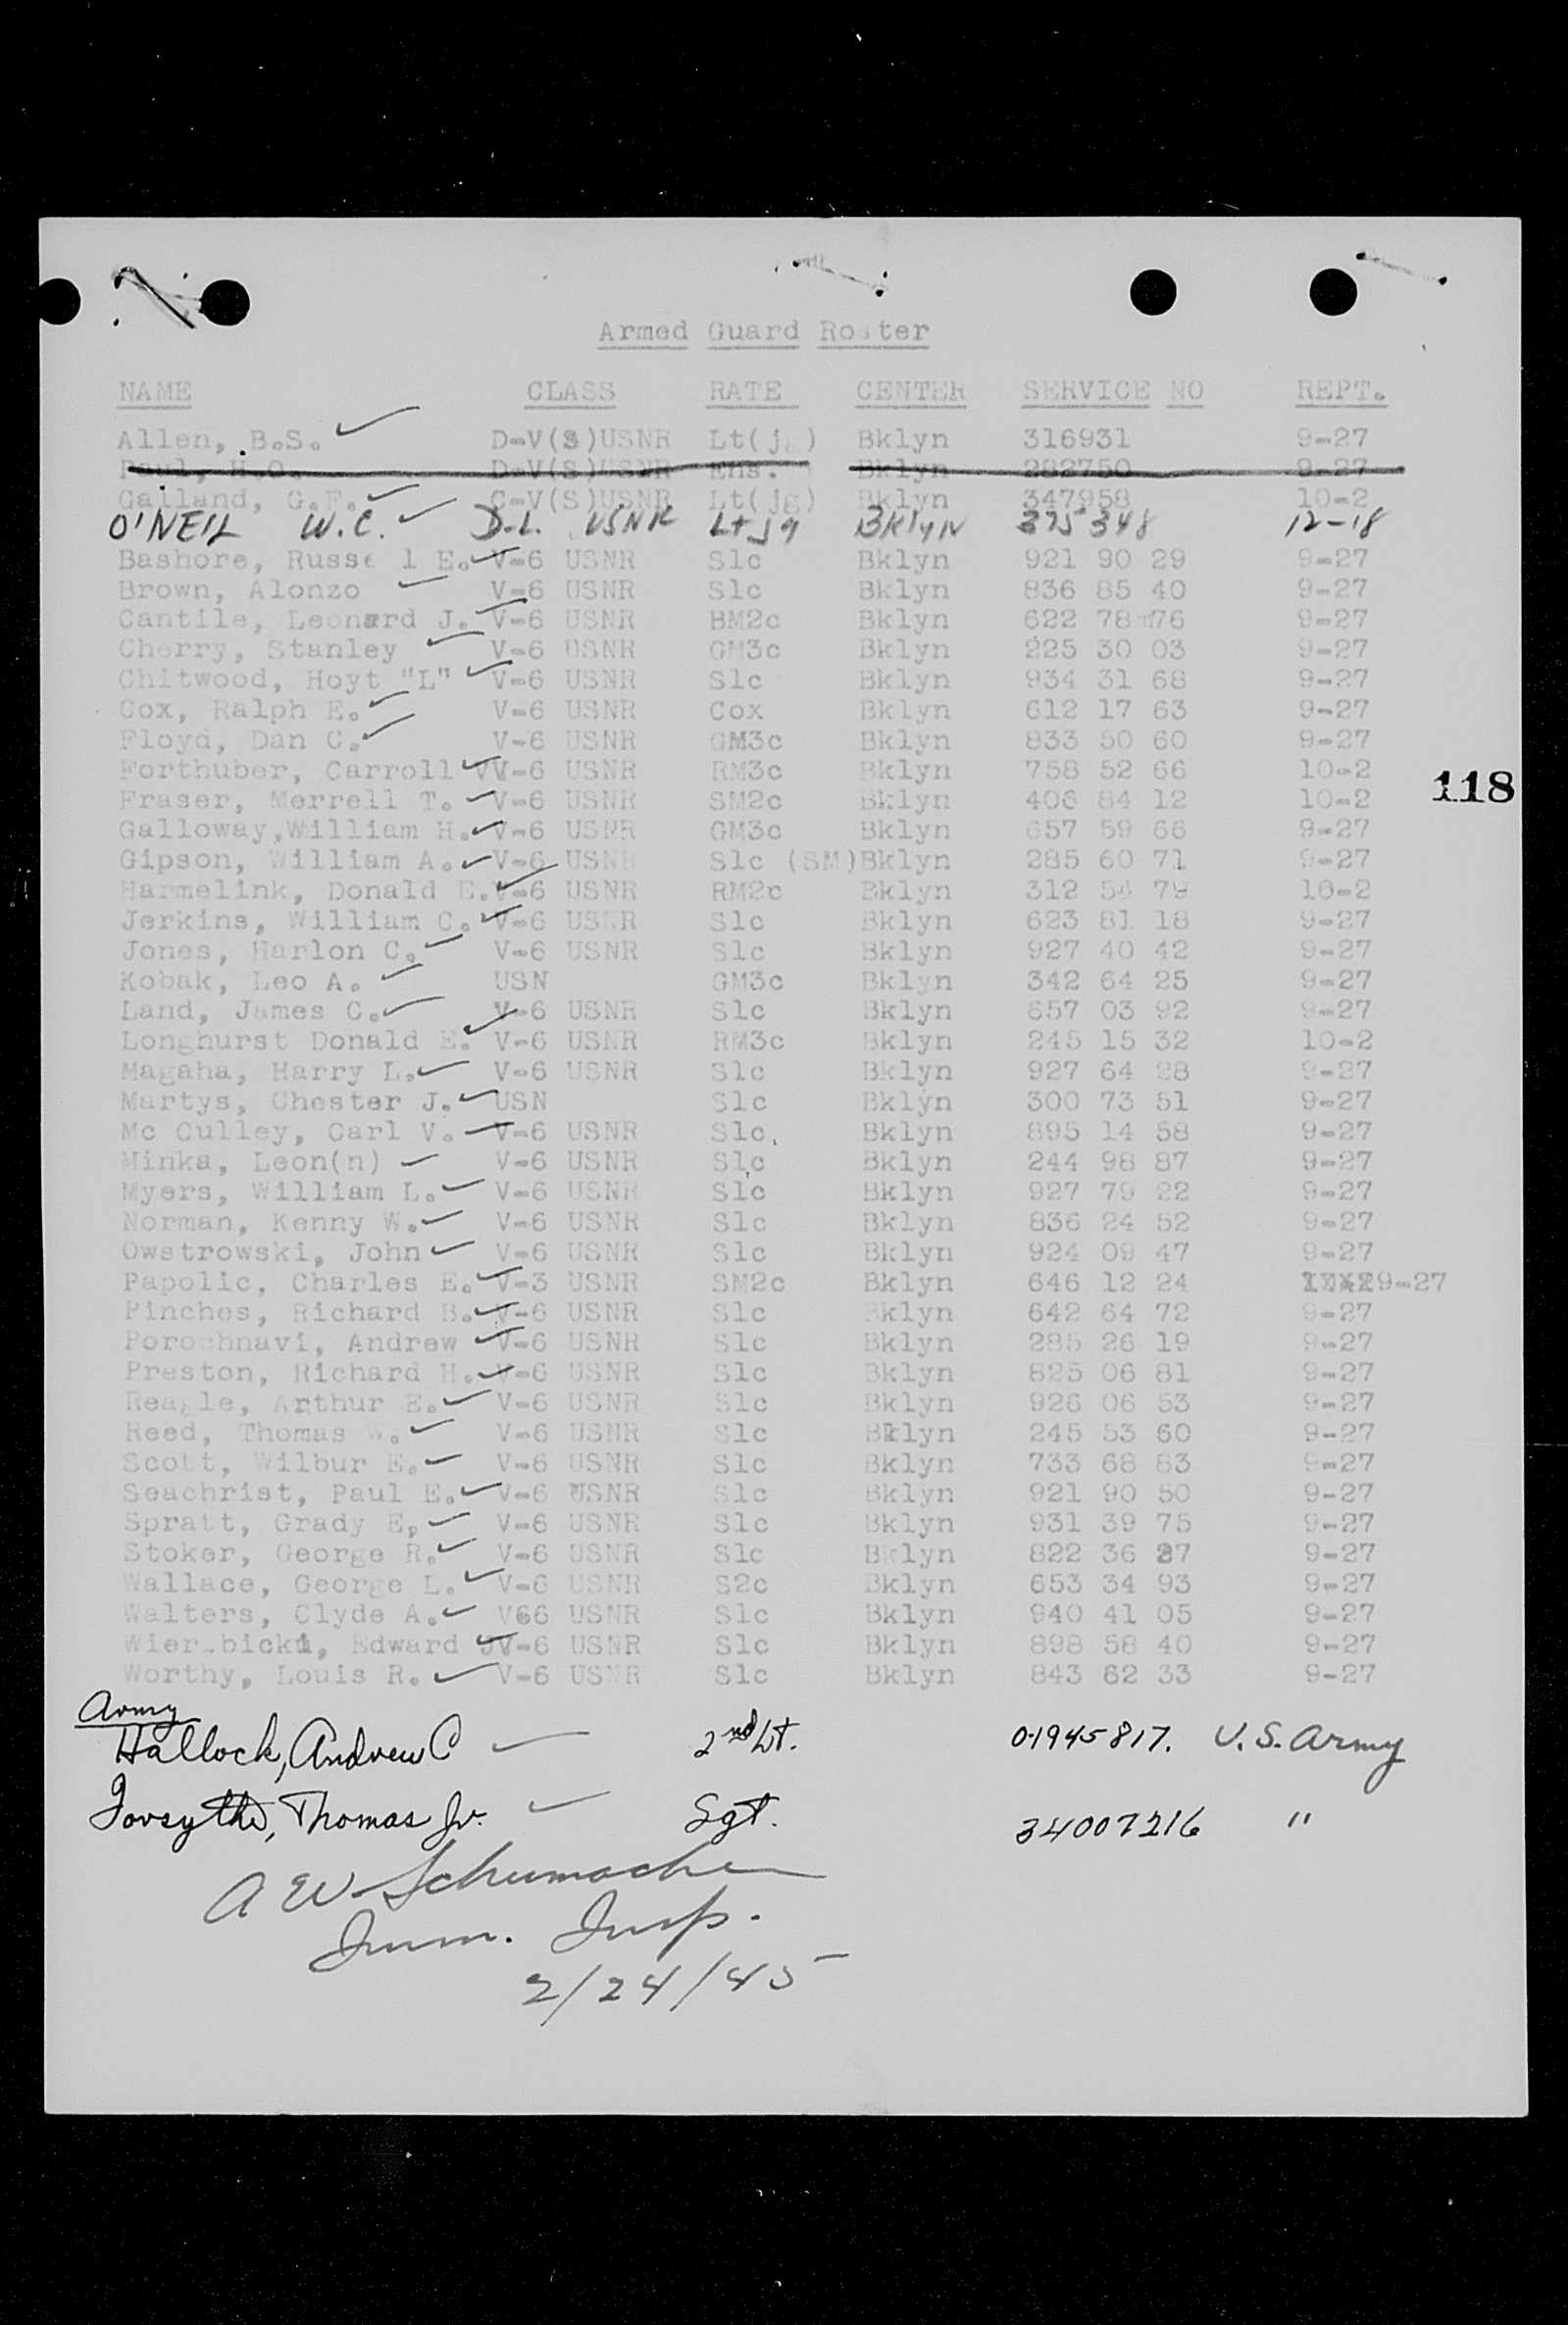 Armed Guard Roster
NAME CLASS RATE CENTER SERVICE NO REPT.
Allen, B.S. D-V(S)USNR Lt(jg) Bklyn 316931 9-27
Paul, H.O. D-V(S)USNR Ens. Bklyn 282750 9-27
Gailand, G.F. C-V(S)USNR Lt(jg) Bklyn 347958 10-2
O'NEIL W.C. D-L. USNR Lt jg BKlyN 375348 12-18
Bashore, Russe l E. V-6 USNR Slc Bklyn 921 90 29 9-27
Brown, Alonzo V-6 USNR Slc Bklyn 836 85 40 9-27
Cantile, Leonard J. V-6 USNR BM2c Bklyn 622 78 76 9-27
Cherry, Stanley V-6 USNR GM3c Bklyn 225 30 03 9-27
Chitwood, Hoyt "L" V-6 USNR Slc Bklyn 934 31 68 9-27
Cox, Ralph E. V-6 USNR Cox Bklyn 612 17 63 9-27
Floyd, Dan C. V-6 USNR GM3c Bklyn 833 50 60 9-27
Forthuber, Carroll W V-6 USNR RM3c Bklyn 758 52 66 10-2
118
Fraser, Merrell T. V-6 USNR SM2c Bklyn 406 84 12 10-2
Galloway,William H. V-6 USNR GM3c Bklyn 657 59 66 9-27
Gipson, William A. V-6 USNR Slc (SM)Bklyn 285 60 71 9-27
Harmelink, Donald E. V-6 USNR RM2c Bklyn 312 54 79 10-2
Jerkins, William C. V-6 USNR Slc Bklyn 623 81 18 9-27
Jones, Harlon C. V-6 USNR Slc Bklyn 927 40 42 9-27
Kobak, Leo A. USN GM3c Bklyn 342 64 25 9-27
Land, James C. V-6 USNR Slc Bklyn 657 03 92 9-27
Longhurst Donald E. V-6 USNR RM3c Bklyn 245 15 32 10-2
Magaha, Harry L. V-6 USNR Slc Bklyn 927 64 28 9-27
Martys, Chester J. USN Slc Bklyn 300 73 51 9-27
Mc Culley, Carl V. V-6 USNR Slc Bklyn 895 14 58 9-27
Minka, Leon(n) V-6 USNR Slc Bklyn 244 98 87 9-27
Myers, William L. V-6 USNR Slc Bklyn 927 79 22 9-27
Norman, Kenny W. V-6 USNR Slc Bklyn 836 24 52 9-27
Owstrowski, John V-6 USNR Slc Bklyn 924 09 47 9-27
Papolic, Charles E. V-3 USNR SM2c Bklyn 646 12 24 9-27
Pinches, Richard B. V-6 USNR Slc Bklyn 642 64 72 9-27
Porochnavi, Andrew V-6 USNR Slc Bklyn 285 26 19 9-27
Preston, Richard H. V-6 USNR Slc Bklyn 825 06 81 9-27
Reagle, Arthur E. V-6 USNR Slc Bklyn 926 06 53 9-27
Reed, Thomas W. V-6 USNR Slc Bklyn 245 53 60 9-27
Scott, Wilbur E. V-6 USNR Slc Bklyn 733 68 83 9-27
Seachrist, Paul E. V-6 USNR Slc Bklyn 921 90 50 9-27
Spratt, Grady E, V-6 USNR Slc Bklyn 931 39 75 9-27
Stoker, George R. V-6 USNR Slc Bklyn 822 36 27 9-27
Wallace, George L. V-6 USNR S2c Bklyn 653 34 93 9-27
Walters, Clyde A. V66 USNR Slc Bklyn 940 41 05 9-27
Wier bicki, Edward J V-6 USNR Slc Bklyn 898 58 40 9-27
Worthy, Louis R. V-6 USNR Slc Bklyn 843 62 33 9-27
Army
Hallock, Andrew C 2nd Lt. 01945817. U.S. Army
Forsythe, Thomas Jr. Sgt. 34007216 "
A W Schumacher
Imm. Insp.
2/24/45